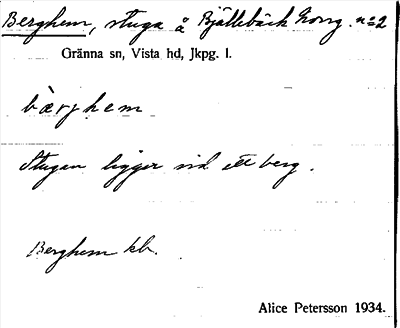 Berghem, stuga å Bjällebäck Norrg. nº 2
Gränna sn, Vista hd, Jkpg. l.
bærjhem
Stugan ligger vid ett berg.
Berghem kb.
Alice Petersson 1934.